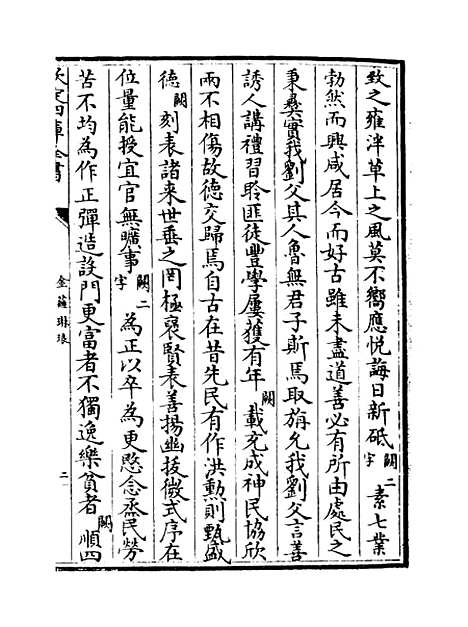 致之雍泮草上之風莫不嚮應悅誨日新砥闕二字素七業
勃然而興咸居今而好古雖未盡道善必有所由處民之
秉彝實我劉父其人魯無君子斯焉取旃允我劉父言善
誘人講禮習聆匪徒豐學屢獲有年闕載充成神民協欣
兩不相傷故德交歸焉自古在昔先民有作洪勳則甄盛
德闕刻表諸來世垂之罔極褒賢表善揚幽拔微式序在
位量能授宜官無曠事闕二字為正以卒為更愍念烝民勞
苦不均為作正彈造設門更富者不獨逸樂貧者闕順四
欽定四庫全書
金薤琳琅
二